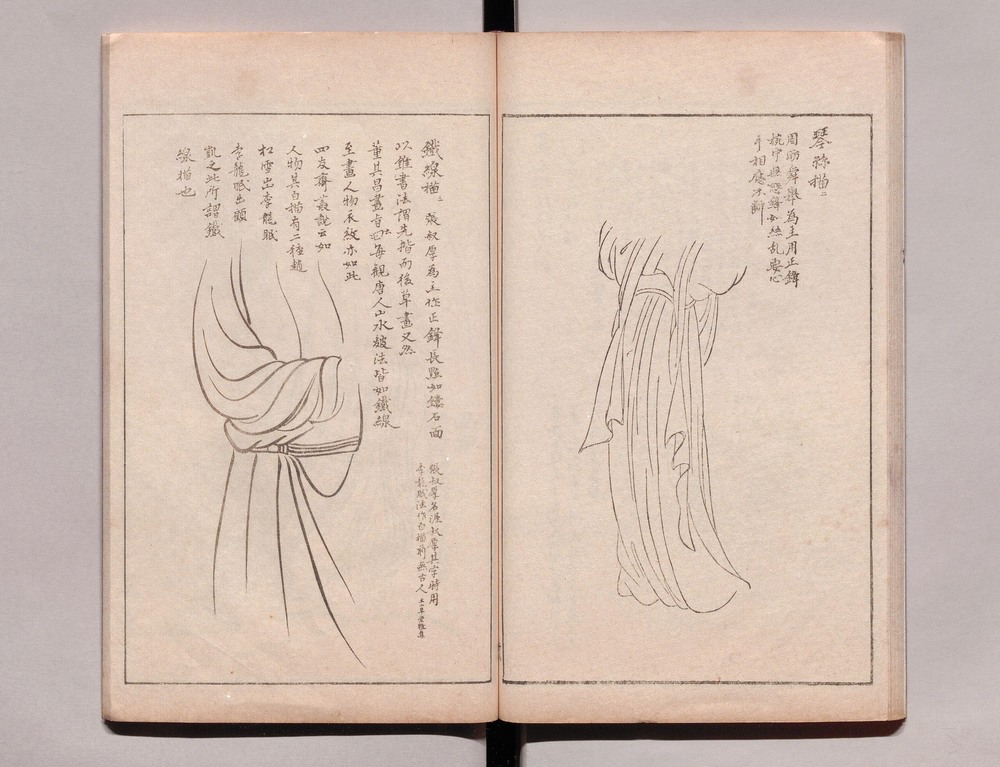 琴絲描二
周昉舜舉為主用正鋒
梳中無懸鋒如絲亂要心
手相應不斷
鐵線描二 張叔厚為主作正鋒長點如鏤石面
以錐書法謂先揩而後草畫又然
董其昌畫旨曰每觀唐人山水皴法皆如鐵線
至畫人物衣紋亦如此
四友齋叢說云如
人物其白描有二種趙
松雪出李龍眠
李龍眠出顧
凱之此所謂鐵
線描也
張叔厚名渥叔厚其字時用
李龍眠法作白描前無古人